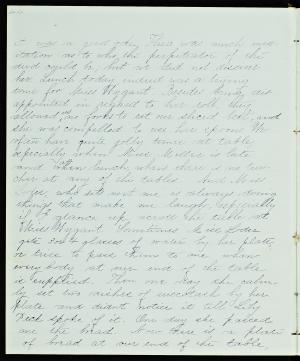 it was a good joke. There was much med-
itation as to who the perpetrator of the
deed could be, but we did not discover
her. Lunch today indeed was a trying
time for Miss Wygant. Besides being dis
appointed in regard to her roll they
allowed no forks to eat our sliced and
she was compelled to use her spoon. We
often have quite jolly times at table
especially when Miss Mollie is late
and when lunch, when there is no tea-
cher at any of the tables. And Miss
who sits next me is always doing
things that make me laugh, especially
if I glance up across the table at
Miss Wygant. Sometimes Miss
gets 3 or 4 glasses of water by her plate,
or tries to pass them to me when
everybody at our end of the table
is supplied. Then one day she calm-
ly set two dishes of by her
plate and didn't notice it till
spoke of it. One day she passed
me the bread. Now there is a plate
of bread at our end of the table,